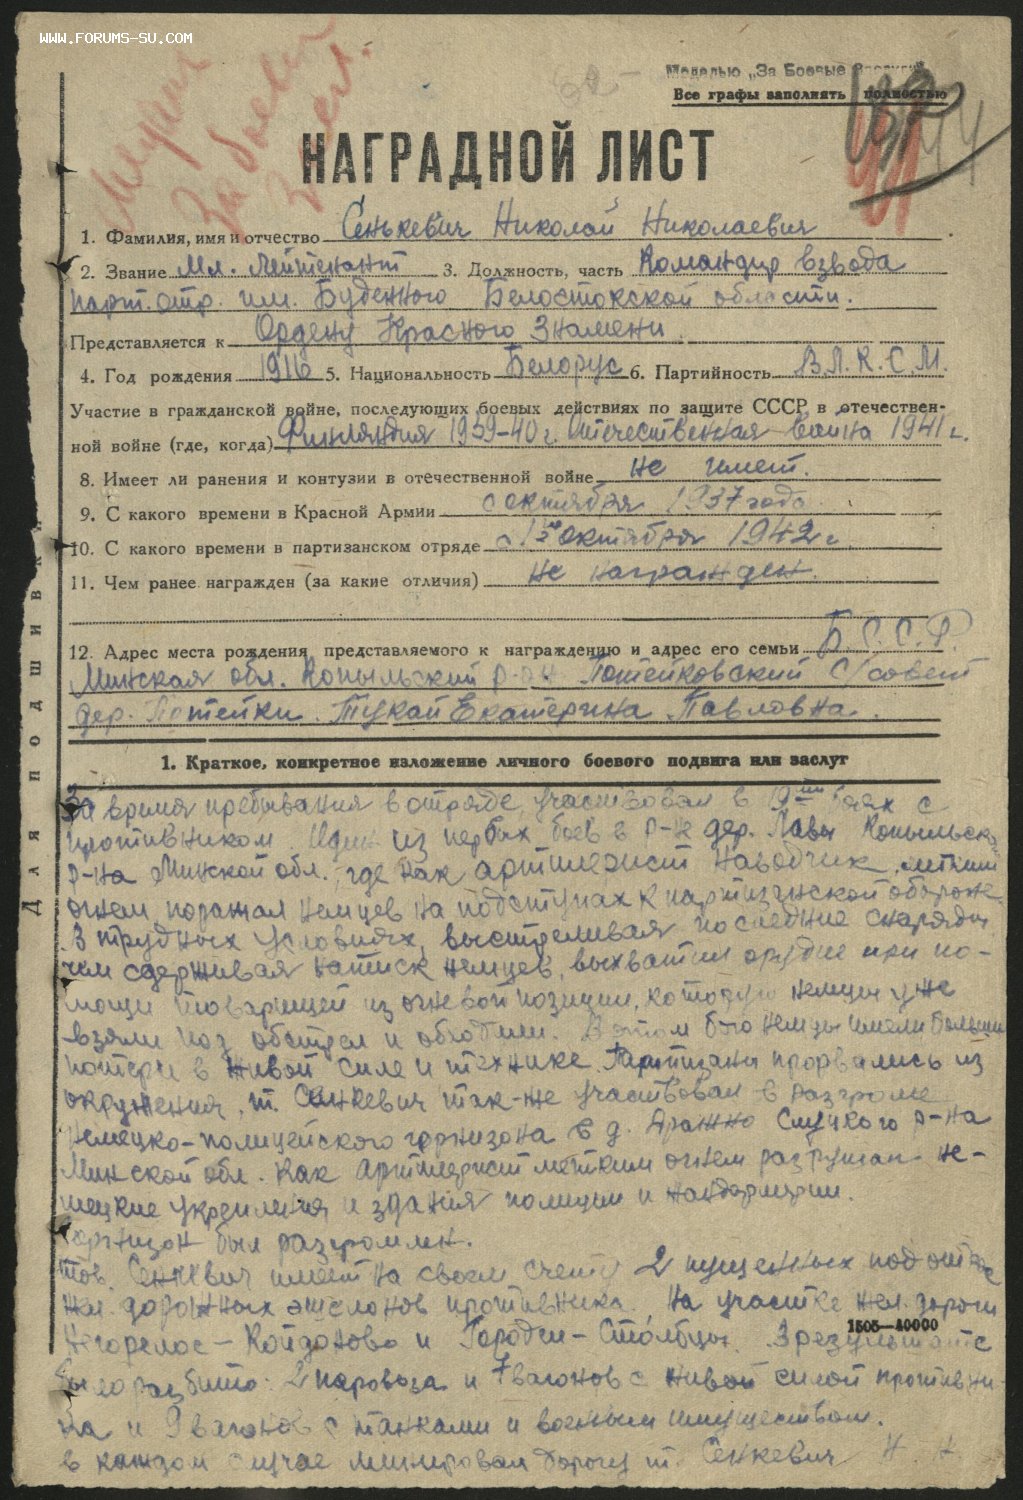 WWW.FORUMS-SU.COM
Медаль
За боевые
Засл.
Медалью „За Боевые Заслуги"
Все графы заполнять полностью
НАГРАДНОЙ ЛИСТ
1. Фамилия, имя и отчество Сенькевич Николай Николаевич
2. Звание Мл. Лейтенант 3. Должность, часть Командир взвода
парт. отр. им. Буденного Белостокской области.
Представляется к Ордену Красного Знамени.
4. Год рождения 1916 5. Национальность Белорус 6. Партийность В.Л.К.С.М.
Участие в гражданской войне, последующих боевых действиях по защите СССР в отечествен-
ной войне (где, когда) Финляндия 1939-40 г. Отечественная война 1941 г.
8. Имеет ли ранения и контузии в отечественной войне не имеет.
9. С какого времени в Красной Армии с октября 1937 года
10. С какого времени в партизанском отряде с октября 1942 г.
11. Чем ранее награжден (за какие отличия) не награжден.
12. Адрес места рождения представляемого к награждению и адрес его семьи Б.С.С.Р.
Минская обл. Копыльский р-он Потейковский С/совет
дер. Потейки. Тукай Екатерина Павловна.
1. Краткое, конкретное изложение личного боевого подвига или заслуг
За время пребывания в отряде участвовал в 19-ти боях с
противником Один из первых боев в р-не дер. Лавы Копыльск.
р-на Минской обл., где как артиллерист наводчик, метким
огнем поражал немцев на подступах к партизанской обороне.
В трудных условиях, выстреливая последние снаряды,
чем сдерживая натиск немцев, выхватил орудие при по-
мощи товарищей из огневой позиции, которую немцы уже
взяли под обстрел и обходили. В этом бою немцы имели большие
потери в живой силе и технике. Партизаны прорвались из
окружения. т. Сенкевич так-же участвовал в разгроме
немецко-полицейского гарнизона в д. Дражно Слуцкого р-на
Минской обл. Как артиллерист метким огнем разрушал не-
мецкие укрепления и здания полиции и жандармерии.
Гарнизон был разгромлен.
Тов. Сенкевич имеет на своем счету 2 пущенных под откос
жел. дорожных эшелонов противника. На участке жел. дороги
Негорелое - Койданово и Городея - Столбцы. В результате
1505—40000
было разбито: 2 паровоза и 7 вагонов с живой силой противни-
ка и 9 вагонов с танками и военным имуществом.
в каждом случае минировал дорогу т. Сенкевич Н. Н.
Для подшивки